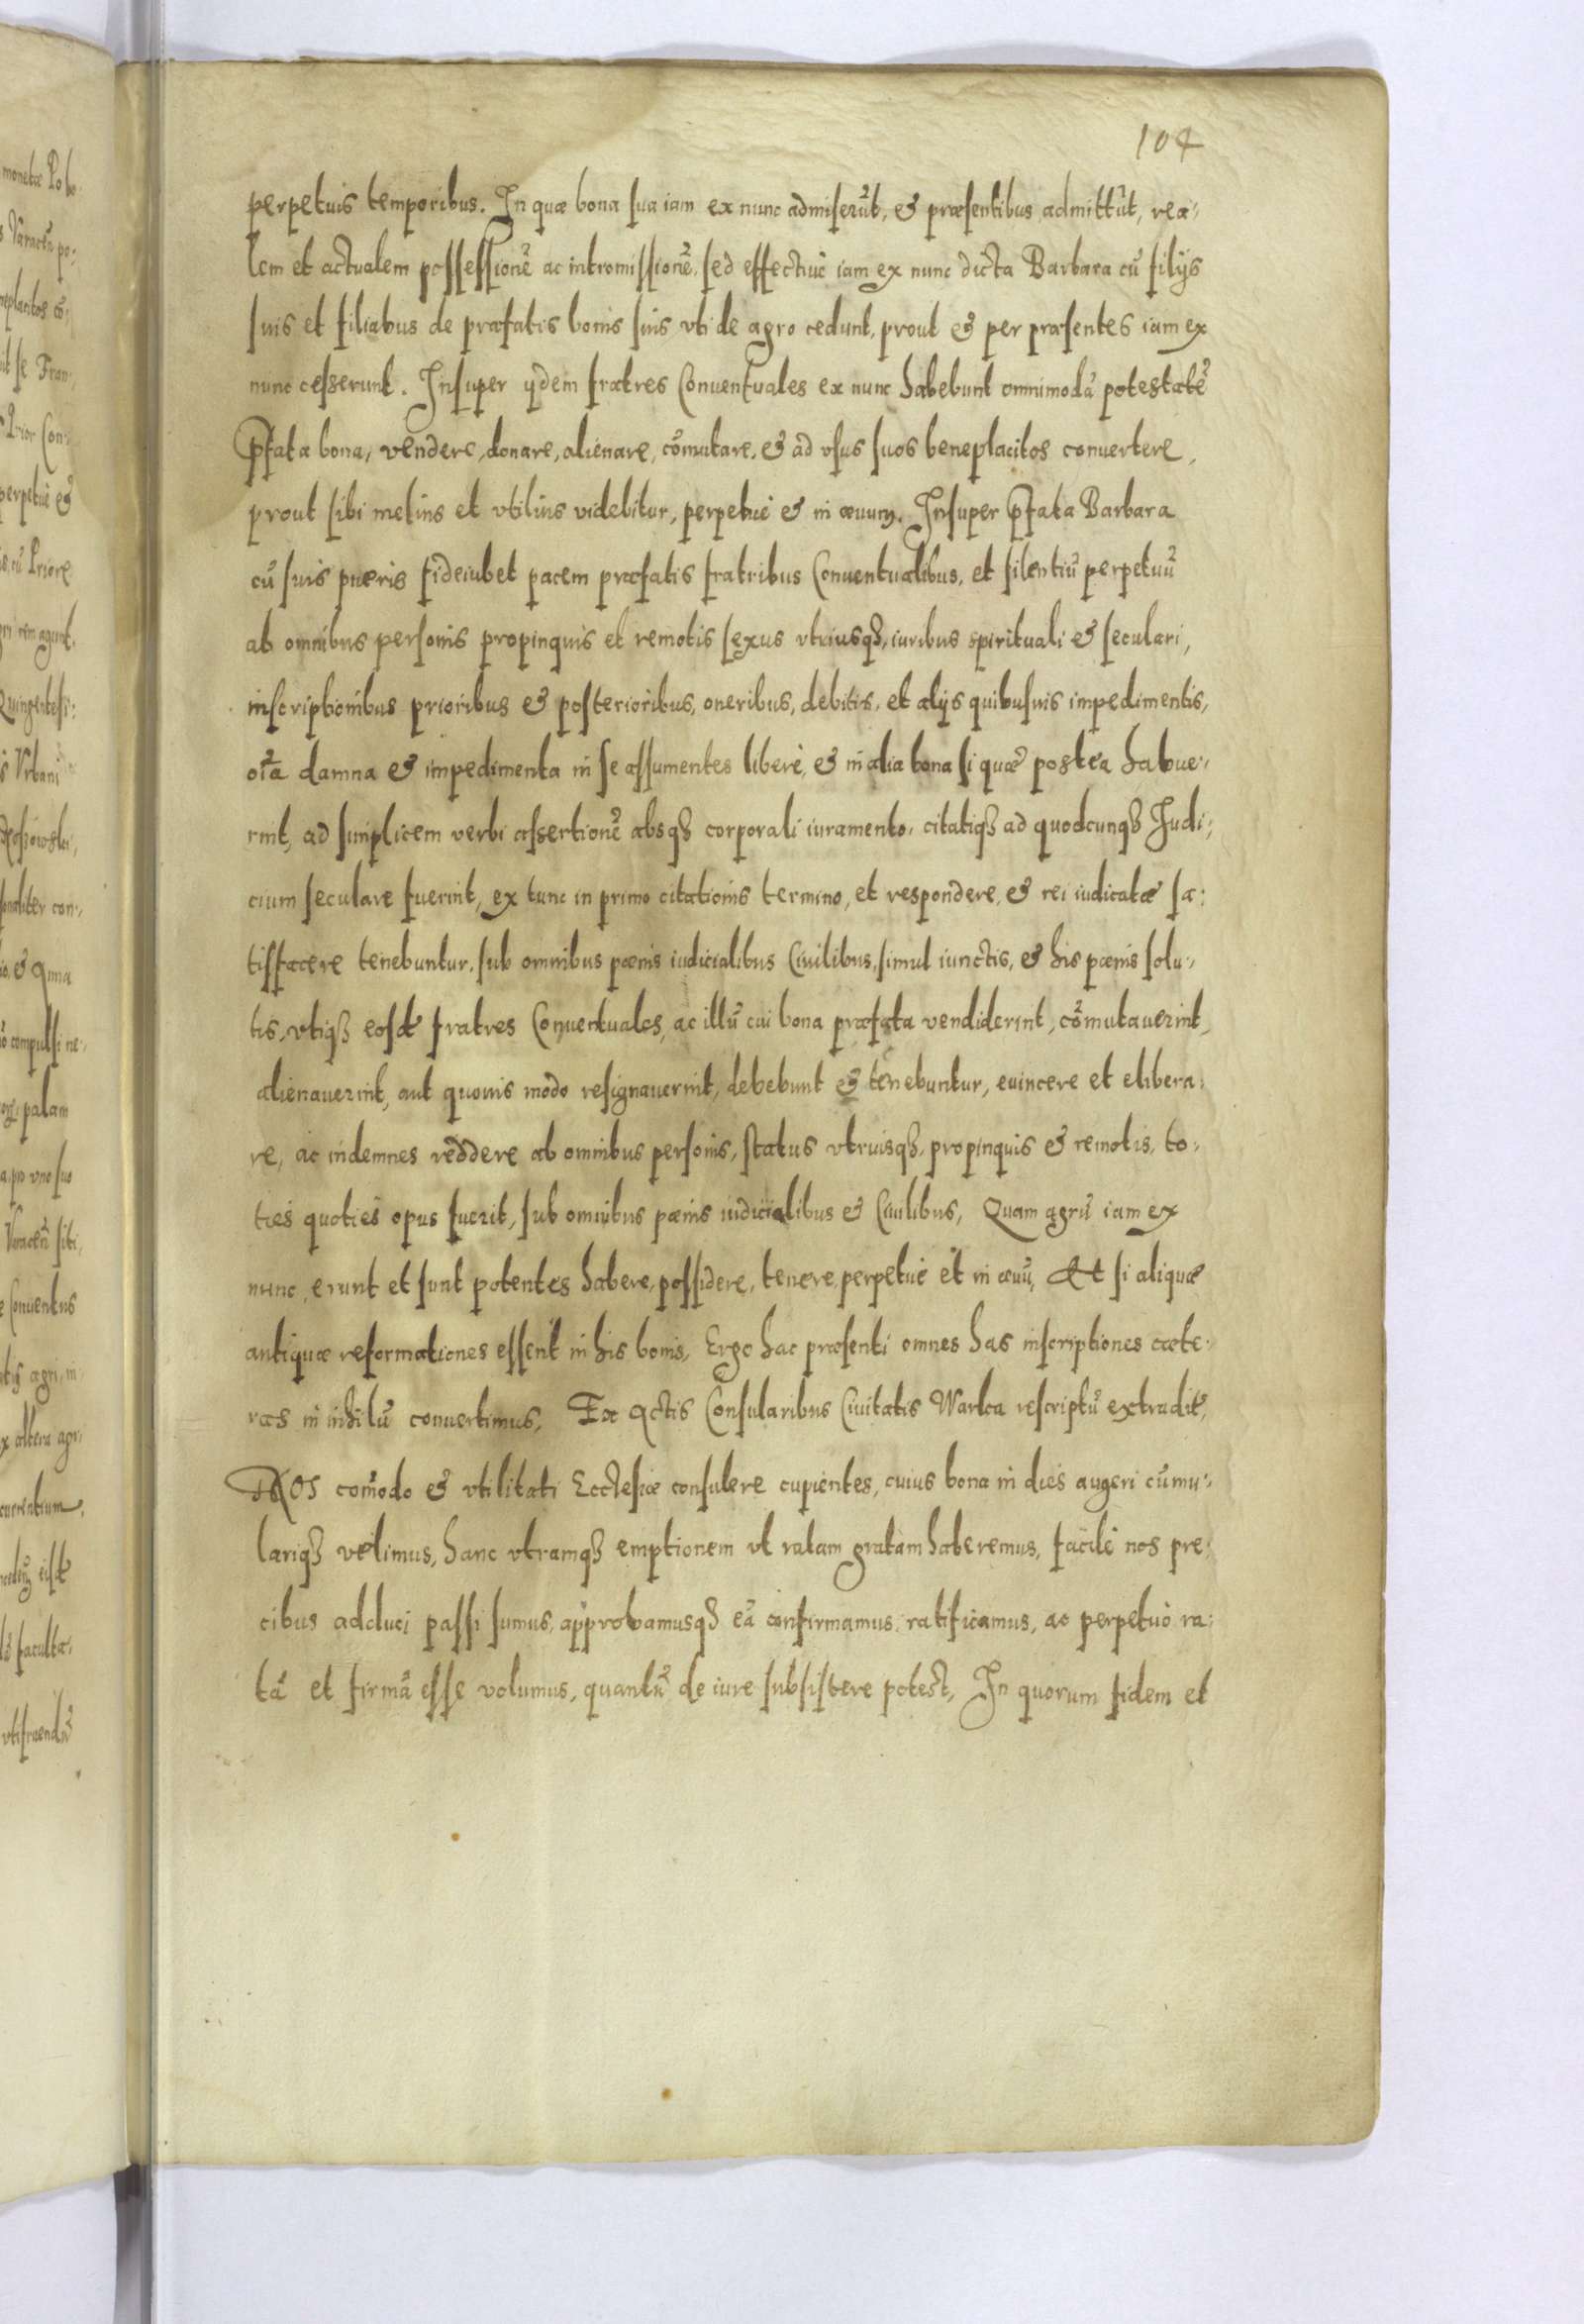 104
perpetuis temporibus. In quæ bona sua iam ex nunc admiserũt, & præsentibus admittũt, rea-
lem et actualem possessionẽ ac intromissionẽ, sed effectiuè iam ex nunc dicta Barbara cũ filijs
suis et filiabus de præfatis bonis suis vti de agro cedunt, prout & per præsentes iam ex
nunc cesserunt. Insuper ijdem fratres Conuentuales ex nunc habebunt omnimodã potestatẽ
p̃fata bona, vendere, donare, alienare, cõmutare, & ad vsus suos beneplacitos conuertere,
prout sibi melius et vtilius videbitur, perpetuè & in æuum. Insuper p̃fata Barbara
cũ suis pueris fideiubet pacem præfatis fratribus Conuentualibus, et silentiũ perpetuũ
ab omnibus personis propinquis et remotis sexus vtriusqȝ, iuribus spirituali & seculari,
inscriptionibus prioribus & posterioribus, oneribus, debitis, et alijs quibusuis impedimentis,
oĩa damna & impedimenta in se assumentes liberè, & in alia bona si quæ postea habue-
rint, ad simplicem verbi assertionẽ absqȝ corporali iuramento, citatiqȝ ad quodcunqȝ Iudi-
cium seculare fuerint, ex tunc in primo citationis termino, et respondere & rei iudicatæ sa:
tisfacere tenebuntur, sub omnibus pœnis iudicialibus Ciuilibus, simul iunctis, & his pœnis solu-
tis, vtiqȝ eosdẽ fratres Conuentuales, ac illũ cui bona præfata vendiderint, cõmutauerint,
alienauerint, aut quouis modo resignauerint, debebunt & tenebuntur, euincere et elibera-
re, ac indemnes reddere ab omnibus personis, status vtriusqȝ, propinquis & remotis, to-
ties quoties opus fuerit, sub omnibus pœnis iudicialibus & Ciuilibus, Quam agrũ iam ex
nunc, erunt et sunt potentes habere, possidere, tenere, perpetuè et in æuũ, Et si aliquæ
antiquæ reformationes essent in his bonis, Ergo hac præsenti omnes has inscriptiones cæte-
ras in nihilũ conuertimus, Ex Actis Consularibus Ciuitatis Warka rescriptũ extraditũ,
NOS com̃odo & vtilitati Ecclesiæ consulere cupientes, cuius bona in dies augeri cumu-
lariqȝ velimus, hanc vtramqȝ emptionem vt ratam gratam haberemus, facilè nos pre-
cibus adduci passi sumus, approbamusqȝ eã confirmamus, ratificamus, ac perpetuò ra-
tã et firmã esse volumus, quantũ de iure subsistere potest, In quorum fidem et